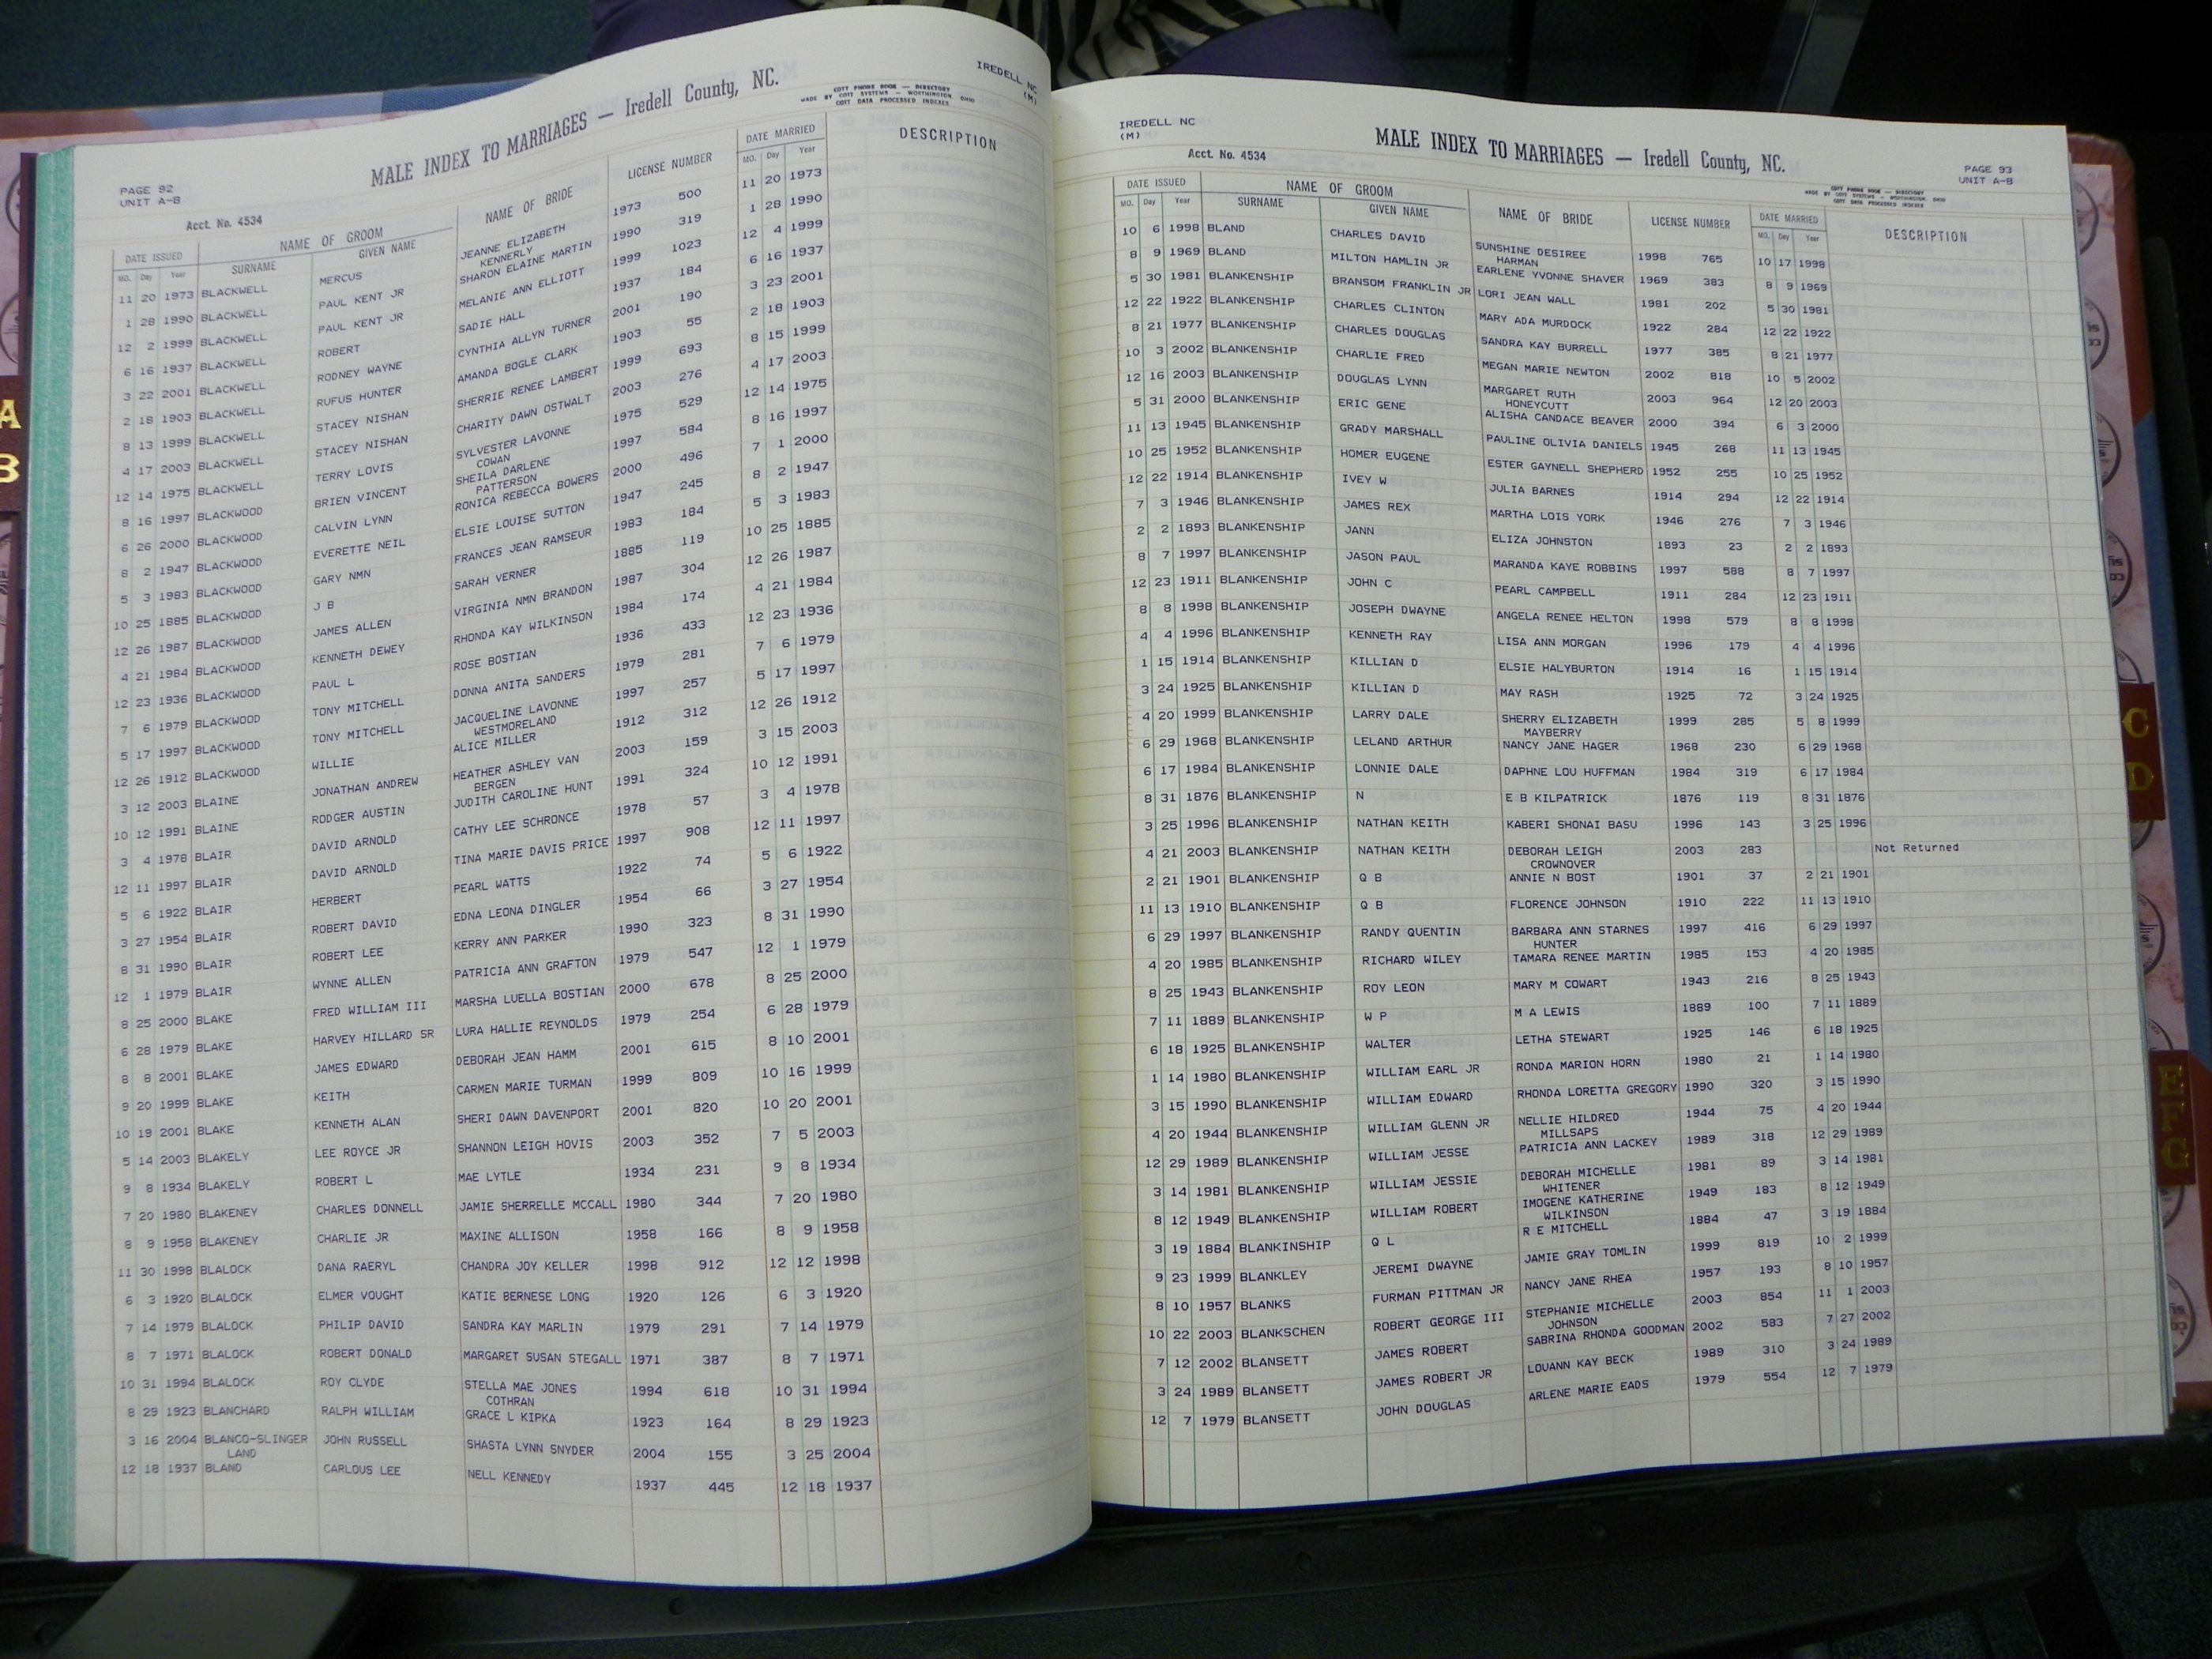 IREDELL NC
(M)
MALE INDEX TO MARRIAGES — Iredell County, NC.
COTT PHONE BOOK — DIRECTORY
MADE BY COTT SYSTEMS — WORTHINGTON, OHIO
COTT DATA PROCESSED INDEXES
PAGE 92
UNIT A-B
Acct. No. 4534
DATE ISSUED NAME OF GROOM NAME OF BRIDE LICENSE NUMBER DATE MARRIED DESCRIPTION
MO. Day Year SURNAME GIVEN NAME MO. Day Year
11 20 1973 BLACKWELL MERCUS JEANNE ELIZABETH 1973 500 11 20 1973
KENNERLY
1 28 1990 BLACKWELL PAUL KENT JR SHARON ELAINE MARTIN 1990 319 1 28 1990
12 2 1999 BLACKWELL PAUL KENT JR MELANIE ANN ELLIOTT 1999 1023 12 4 1999
6 16 1937 BLACKWELL ROBERT SADIE HALL 1937 184 6 16 1937
3 22 2001 BLACKWELL RODNEY WAYNE CYNTHIA ALLYN TURNER 2001 190 3 23 2001
2 18 1903 BLACKWELL RUFUS HUNTER AMANDA BOGLE CLARK 1903 55 2 18 1903
8 13 1999 BLACKWELL STACEY NISHAN SHERRIE RENEE LAMBERT 1999 693 8 15 1999
4 17 2003 BLACKWELL STACEY NISHAN CHARITY DAWN OSTWALT 2003 276 4 17 2003
12 14 1975 BLACKWELL TERRY LOVIS SYLVESTER LAVONNE 1975 529 12 14 1975
COWAN
8 16 1997 BLACKWOOD BRIEN VINCENT SHEILA DARLENE 1997 584 8 16 1997
PATTERSON
6 26 2000 BLACKWOOD CALVIN LYNN RONICA REBECCA BOWERS 2000 496 7 1 2000
8 2 1947 BLACKWOOD EVERETTE NEIL ELSIE LOUISE SUTTON 1947 245 8 2 1947
5 3 1983 BLACKWOOD GARY NMN FRANCES JEAN RAMSEUR 1983 184 5 3 1983
10 25 1885 BLACKWOOD J B SARAH VERNER 1885 119 10 25 1885
12 26 1987 BLACKWOOD JAMES ALLEN VIRGINIA NMN BRANDON 1987 304 12 26 1987
4 21 1984 BLACKWOOD KENNETH DEWEY RHONDA KAY WILKINSON 1984 174 4 21 1984
12 23 1936 BLACKWOOD PAUL L ROSE BOSTIAN 1936 433 12 23 1936
7 6 1979 BLACKWOOD TONY MITCHELL DONNA ANITA SANDERS 1979 281 7 6 1979
5 17 1997 BLACKWOOD TONY MITCHELL JACQUELINE LAVONNE 1997 257 5 17 1997
WESTMORELAND
12 26 1912 BLACKWOOD WILLIE ALICE MILLER 1912 312 12 26 1912
3 12 2003 BLAINE JONATHAN ANDREW HEATHER ASHLEY VAN 2003 159 3 15 2003
BERGEN
10 12 1991 BLAINE RODGER AUSTIN JUDITH CAROLINE HUNT 1991 324 10 12 1991
3 4 1978 BLAIR DAVID ARNOLD CATHY LEE SCHRONCE 1978 57 3 4 1978
12 11 1997 BLAIR DAVID ARNOLD TINA MARIE DAVIS PRICE 1997 908 12 11 1997
5 6 1922 BLAIR HERBERT PEARL WATTS 1922 74 5 6 1922
3 27 1954 BLAIR ROBERT DAVID EDNA LEONA DINGLER 1954 66 3 27 1954
8 31 1990 BLAIR ROBERT LEE KERRY ANN PARKER 1990 323 8 31 1990
12 1 1979 BLAIR WYNNE ALLEN PATRICIA ANN GRAFTON 1979 547 12 1 1979
8 25 2000 BLAKE FRED WILLIAM III MARSHA LUELLA BOSTIAN 2000 678 8 25 2000
6 28 1979 BLAKE HARVEY HILLARD SR LURA HALLIE REYNOLDS 1979 254 6 28 1979
8 8 2001 BLAKE JAMES EDWARD DEBORAH JEAN HAMM 2001 615 8 10 2001
9 20 1999 BLAKE KEITH CARMEN MARIE TURMAN 1999 809 10 16 1999
10 19 2001 BLAKE KENNETH ALAN SHERI DAWN DAVENPORT 2001 820 10 20 2001
5 14 2003 BLAKELY LEE ROYCE JR SHANNON LEIGH HOVIS 2003 352 7 5 2003
9 8 1934 BLAKELY ROBERT L MAE LYTLE 1934 231 9 8 1934
7 20 1980 BLAKENEY CHARLES DONNELL JAMIE SHERRELLE MCCALL 1980 344 7 20 1980
8 9 1958 BLAKENEY CHARLIE JR MAXINE ALLISON 1958 166 8 9 1958
11 30 1998 BLALOCK DANA RAERYL CHANDRA JOY KELLER 1998 912 12 12 1998
6 3 1920 BLALOCK ELMER VOUGHT KATIE BERNESE LONG 1920 126 6 3 1920
7 14 1979 BLALOCK PHILIP DAVID SANDRA KAY MARLIN 1979 291 7 14 1979
8 7 1971 BLALOCK ROBERT DONALD MARGARET SUSAN STEGALL 1971 387 8 7 1971
10 31 1994 BLALOCK ROY CLYDE STELLA MAE JONES 1994 618 10 31 1994
COTHRAN
8 29 1923 BLANCHARD RALPH WILLIAM GRACE L KIPKA 1923 164 8 29 1923
3 16 2004 BLANCO-SLINGER JOHN RUSSELL SHASTA LYNN SNYDER 2004 155 3 25 2004
LAND
12 18 1937 BLAND CARLOUS LEE NELL KENNEDY 1937 445 12 18 1937
IREDELL NC
(M)
MALE INDEX TO MARRIAGES — Iredell County, NC.
Acct. No. 4534
PAGE 93
UNIT A-B
COTT PHONE BOOK — DIRECTORY
MADE BY COTT SYSTEMS — WORTHINGTON, OHIO
COTT DATA PROCESSED INDEXES
DATE ISSUED NAME OF GROOM NAME OF BRIDE LICENSE NUMBER DATE MARRIED DESCRIPTION
MO. Day Year SURNAME GIVEN NAME MO. Day Year
10 6 1998 BLAND CHARLES DAVID SUNSHINE DESIREE 1998 765 10 17 1998
HARMAN
8 9 1969 BLAND MILTON HAMLIN JR EARLENE YVONNE SHAVER 1969 383 8 9 1969
5 30 1981 BLANKENSHIP BRANSOM FRANKLIN JR LORI JEAN WALL 1981 202 5 30 1981
12 22 1922 BLANKENSHIP CHARLES CLINTON MARY ADA MURDOCK 1922 284 12 22 1922
8 21 1977 BLANKENSHIP CHARLES DOUGLAS SANDRA KAY BURRELL 1977 385 8 21 1977
10 3 2002 BLANKENSHIP CHARLIE FRED MEGAN MARIE NEWTON 2002 818 10 5 2002
12 16 2003 BLANKENSHIP DOUGLAS LYNN MARGARET RUTH 2003 964 12 20 2003
HONEYCUTT
5 31 2000 BLANKENSHIP ERIC GENE ALISHA CANDACE BEAVER 2000 394 6 3 2000
11 13 1945 BLANKENSHIP GRADY MARSHALL PAULINE OLIVIA DANIELS 1945 268 11 13 1945
10 25 1952 BLANKENSHIP HOMER EUGENE ESTER GAYNELL SHEPHERD 1952 255 10 25 1952
12 22 1914 BLANKENSHIP IVEY W JULIA BARNES 1914 294 12 22 1914
7 3 1946 BLANKENSHIP JAMES REX MARTHA LOIS YORK 1946 276 7 3 1946
2 2 1893 BLANKENSHIP JANN ELIZA JOHNSTON 1893 23 2 2 1893
8 7 1997 BLANKENSHIP JASON PAUL MARANDA KAYE ROBBINS 1997 588 8 7 1997
12 23 1911 BLANKENSHIP JOHN C PEARL CAMPBELL 1911 284 12 23 1911
8 8 1998 BLANKENSHIP JOSEPH DWAYNE ANGELA RENEE HELTON 1998 579 8 8 1998
4 4 1996 BLANKENSHIP KENNETH RAY LISA ANN MORGAN 1996 179 4 4 1996
1 15 1914 BLANKENSHIP KILLIAN D ELSIE HALYBURTON 1914 16 1 15 1914
3 24 1925 BLANKENSHIP KILLIAN D MAY RASH 1925 72 3 24 1925
4 20 1999 BLANKENSHIP LARRY DALE SHERRY ELIZABETH 1999 285 5 8 1999
MAYBERRY
6 29 1968 BLANKENSHIP LELAND ARTHUR NANCY JANE HAGER 1968 230 6 29 1968
6 17 1984 BLANKENSHIP LONNIE DALE DAPHNE LOU HUFFMAN 1984 319 6 17 1984
8 31 1876 BLANKENSHIP N E B KILPATRICK 1876 119 8 31 1876
3 25 1996 BLANKENSHIP NATHAN KEITH KABERI SHONAI BASU 1996 143 3 25 1996
4 21 2003 BLANKENSHIP NATHAN KEITH DEBORAH LEIGH 2003 283 Not Returned
CROWNOVER
2 21 1901 BLANKENSHIP Q B ANNIE N BOST 1901 37 2 21 1901
11 13 1910 BLANKENSHIP Q B FLORENCE JOHNSON 1910 222 11 13 1910
6 29 1997 BLANKENSHIP RANDY QUENTIN BARBARA ANN STARNES 1997 416 6 29 1997
HUNTER
4 20 1985 BLANKENSHIP RICHARD WILEY TAMARA RENEE MARTIN 1985 153 4 20 1985
8 25 1943 BLANKENSHIP ROY LEON MARY M COWART 1943 216 8 25 1943
7 11 1889 BLANKENSHIP W P M A LEWIS 1889 100 7 11 1889
6 18 1925 BLANKENSHIP WALTER LETHA STEWART 1925 146 6 18 1925
1 14 1980 BLANKENSHIP WILLIAM EARL JR RONDA MARION HORN 1980 21 1 14 1980
3 15 1990 BLANKENSHIP WILLIAM EDWARD RHONDA LORETTA GREGORY 1990 320 3 15 1990
4 20 1944 BLANKENSHIP WILLIAM GLENN JR NELLIE HILDRED 1944 75 4 20 1944
MILLSAPS
12 29 1989 BLANKENSHIP WILLIAM JESSE PATRICIA ANN LACKEY 1989 318 12 29 1989
3 14 1981 BLANKENSHIP WILLIAM JESSIE DEBORAH MICHELLE 1981 89 3 14 1981
WHITENER
8 12 1949 BLANKENSHIP WILLIAM ROBERT IMOGENE KATHERINE 1949 183 8 12 1949
WILKINSON
3 19 1884 BLANKINSHIP Q L R E MITCHELL 1884 47 3 19 1884
9 23 1999 BLANKLEY JEREMI DWAYNE JAMIE GRAY TOMLIN 1999 819 10 2 1999
8 10 1957 BLANKS FURMAN PITTMAN JR NANCY JANE RHEA 1957 193 8 10 1957
10 22 2003 BLANKSCHEN ROBERT GEORGE III STEPHANIE MICHELLE 2003 854 11 1 2003
JOHNSON
7 12 2002 BLANSETT JAMES ROBERT SABRINA RHONDA GOODMAN 2002 583 7 27 2002
3 24 1989 BLANSETT JAMES ROBERT JR LOUANN KAY BECK 1989 310 3 24 1989
12 7 1979 BLANSETT JOHN DOUGLAS ARLENE MARIE EADS 1979 554 12 7 1979
A
B
C
D
E
F
G